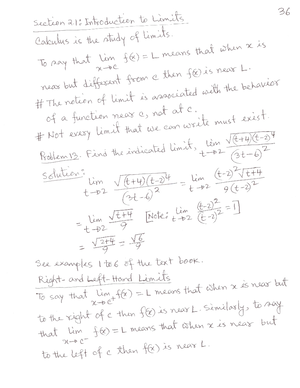 36
Section 2.1: Introduction to Limits
Calculus is the study of limits.
To say that lim x→c f(x) = L means that when x is
near but different from c then f(x) is near L.
# The notion of limit is associated with the behavior
of a function near c, not at c.
# Not every limit that we can write must exist.
Problem 13. Find the indicated limit, lim t→2 √(t+4)(t-2)⁴ / (3t-6)²
Solution:
lim t→2 √(t+4)(t-2)⁴ / (3t-6)² = lim t→2 (t-2)² √t+4 / 9(t-2)²
= lim t→2 √t+4 / 9 [Note: lim t→2 (t-2)² / (t-2)² = 1]
= √2+4 / 9 = √6 / 9
See examples 1 to 6 of the text book.
Right- and Left-Hand Limits
To say that lim x→c⁺ f(x) = L means that when x is near but
to the right of c then f(x) is near L. Similarly, to say
that lim x→c⁻ f(x) = L means that when x is near but
to the left of c then f(x) is near L.